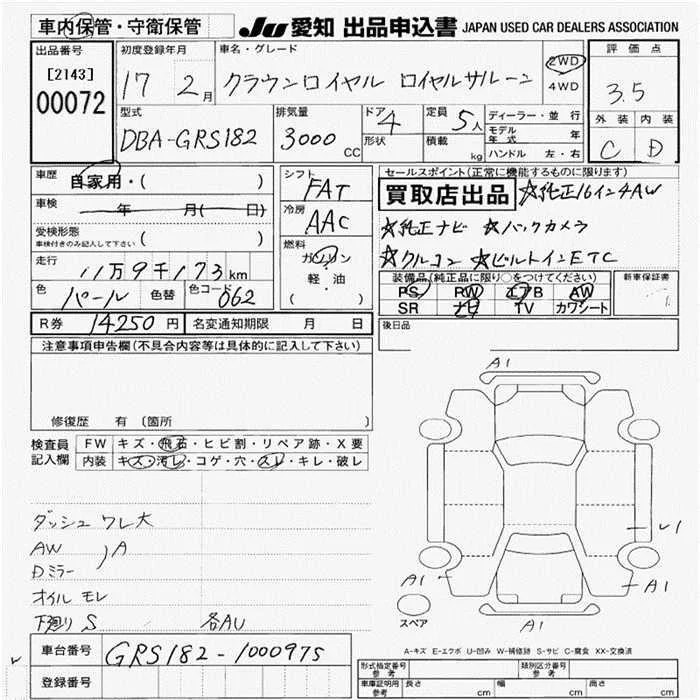 車内保管・守衛保管 JU 愛知 出品申込書 JAPAN USED CAR DEALERS ASSOCIATION
出品番号 初度登録年月 車名・グレード 2WD 評価点
[2143] 17 2月 クラウンロイヤル ロイヤルサルーン 4WD 3.5
00072
型式 排気量 ドア 4 定員 5人 ディーラー・並行 外装 内装
DBA-GRS182 3000 CC 形状 積載 kg モデル年式 年 C D
ハンドル 左・右
車歴 自家用・( )
シフト FAT
セールスポイント(正常に機能するものに限ります)
買取店出品 ☆純正16インチAW
車検 年 月( 日)
冷房 AAC
☆純正ナビ ☆バックカメラ
受検形態 車検付きのみ記入して下さい ( )
燃料 ガソリン
☆クルコン ☆ビルトインETC
走行 11万9千173km
軽・油
( )
装備品(純正品に限り○をつけてください) 新車保証書
色 パール 色替 色コード 062
PS PW エアB AW
SR ナビ TV カワシート
R券 14250円 名変通知期限 月 日
後日品
注意事項申告欄(不具合内容等は具体的に記入して下さい)
修復歴 有 (箇所
検査員記入欄 FW キズ・飛石・ヒビ割・リペア跡・X要
内装 キズ・汚レ・コゲ・穴・スレ・キレ・破レ
A1
ダッシュ ワレ大
AW ) A
Dミラー
オイル モレ
下廻り S 各AU
A1
A1
A1
スペア
A-キズ E-エクボ U-凹み W-補修跡 S-サビ C-腐食 XX-交換済
車台番号 GRS182-1000975
登録番号
型式指定番号 参考 類別区分番号 参考
車庫証明用 参考 長さ cm 幅 cm 高さ cm